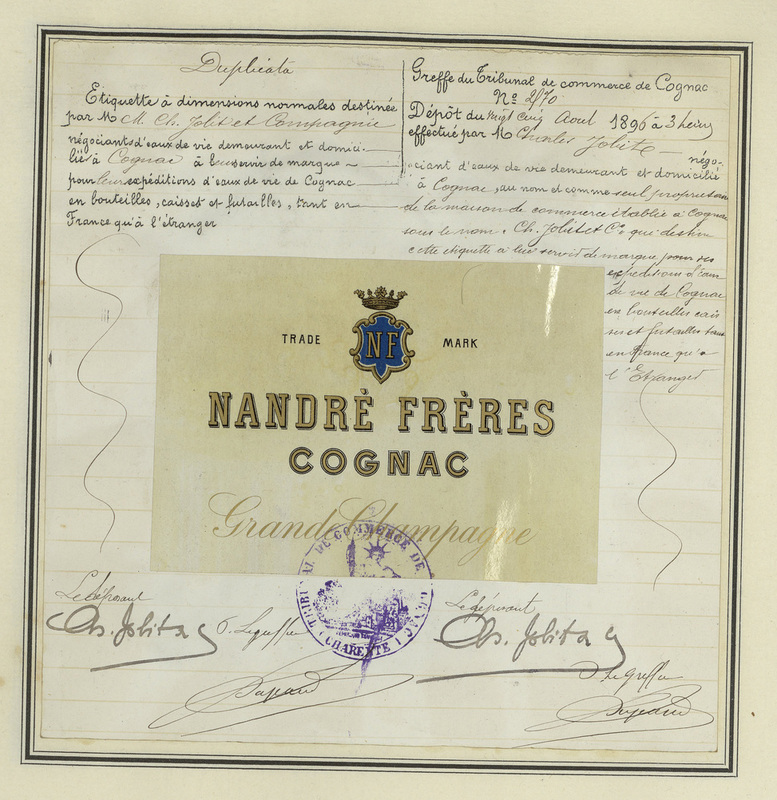 Duplicata
Etiquette à dimensions normales destinée
par M M. Ch. Jolit et Compagnie
négociants d'eaux de vie demeurant et domici-
lié à Cognac à leur servir de marque
pour leurs expéditions d'eaux de vie de Cognac
en bouteilles, caisses et futailles, tant en
France qu'à l'étranger
Greffe du Tribunal de commerce de Cognac
No 2170
Dépôt du Vingt Cinq Aout 1896 à 3 heures
effectué par M Charles Jolit négo-
ciant d'eaux de vie demeurant et domicilié
à Cognac, au nom et comme seul propriétaire
de la maison de commerce établie à Cognac
sous le nom, Ch. Jolit et Cie qui destine
cette étiquette à lui servir de marque pour ses
expéditions d'eau
de vie de Cognac
en bouteilles cais
ses et futailles tant
en France qu'à
l'Etranger
TRADE MARK
NF
NANDRÈ FRÈRES
COGNAC
Grande Champagne
TRIBUNAL DE COMMERCE DE COGNAC
(CHARENTE)
Le déposant
Ch. Jolit & Cie
Le greffier
Le déposant
Ch. Jolit & Cie
Le greffier